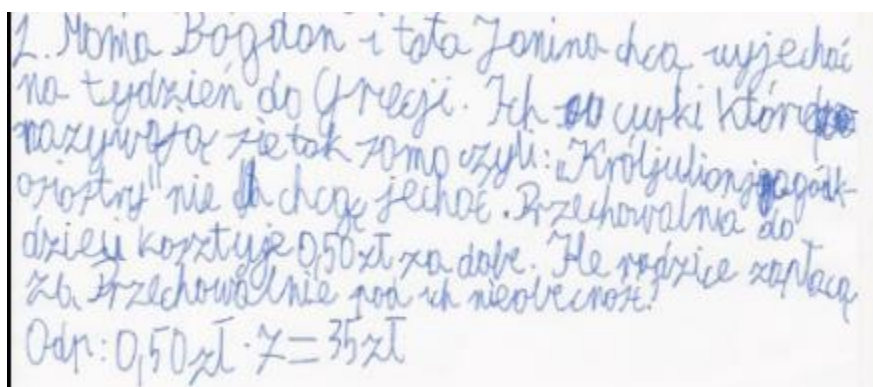 1. Mama Bogdan i tata Janina chcą wyjechać
na tydzień do Grecji. Ich curki które
nazywają się tak samo czyli: „Króljulianjagórk-
osiostry" nie chcą jechać. Przechowalnia do
dzieci kosztuje 0,50 zł za dobe. Ile rodzice zapłacą
za Przechowalnie pod ich nieobecność?
Odp: 0,50 zł · 7 = 35 zł